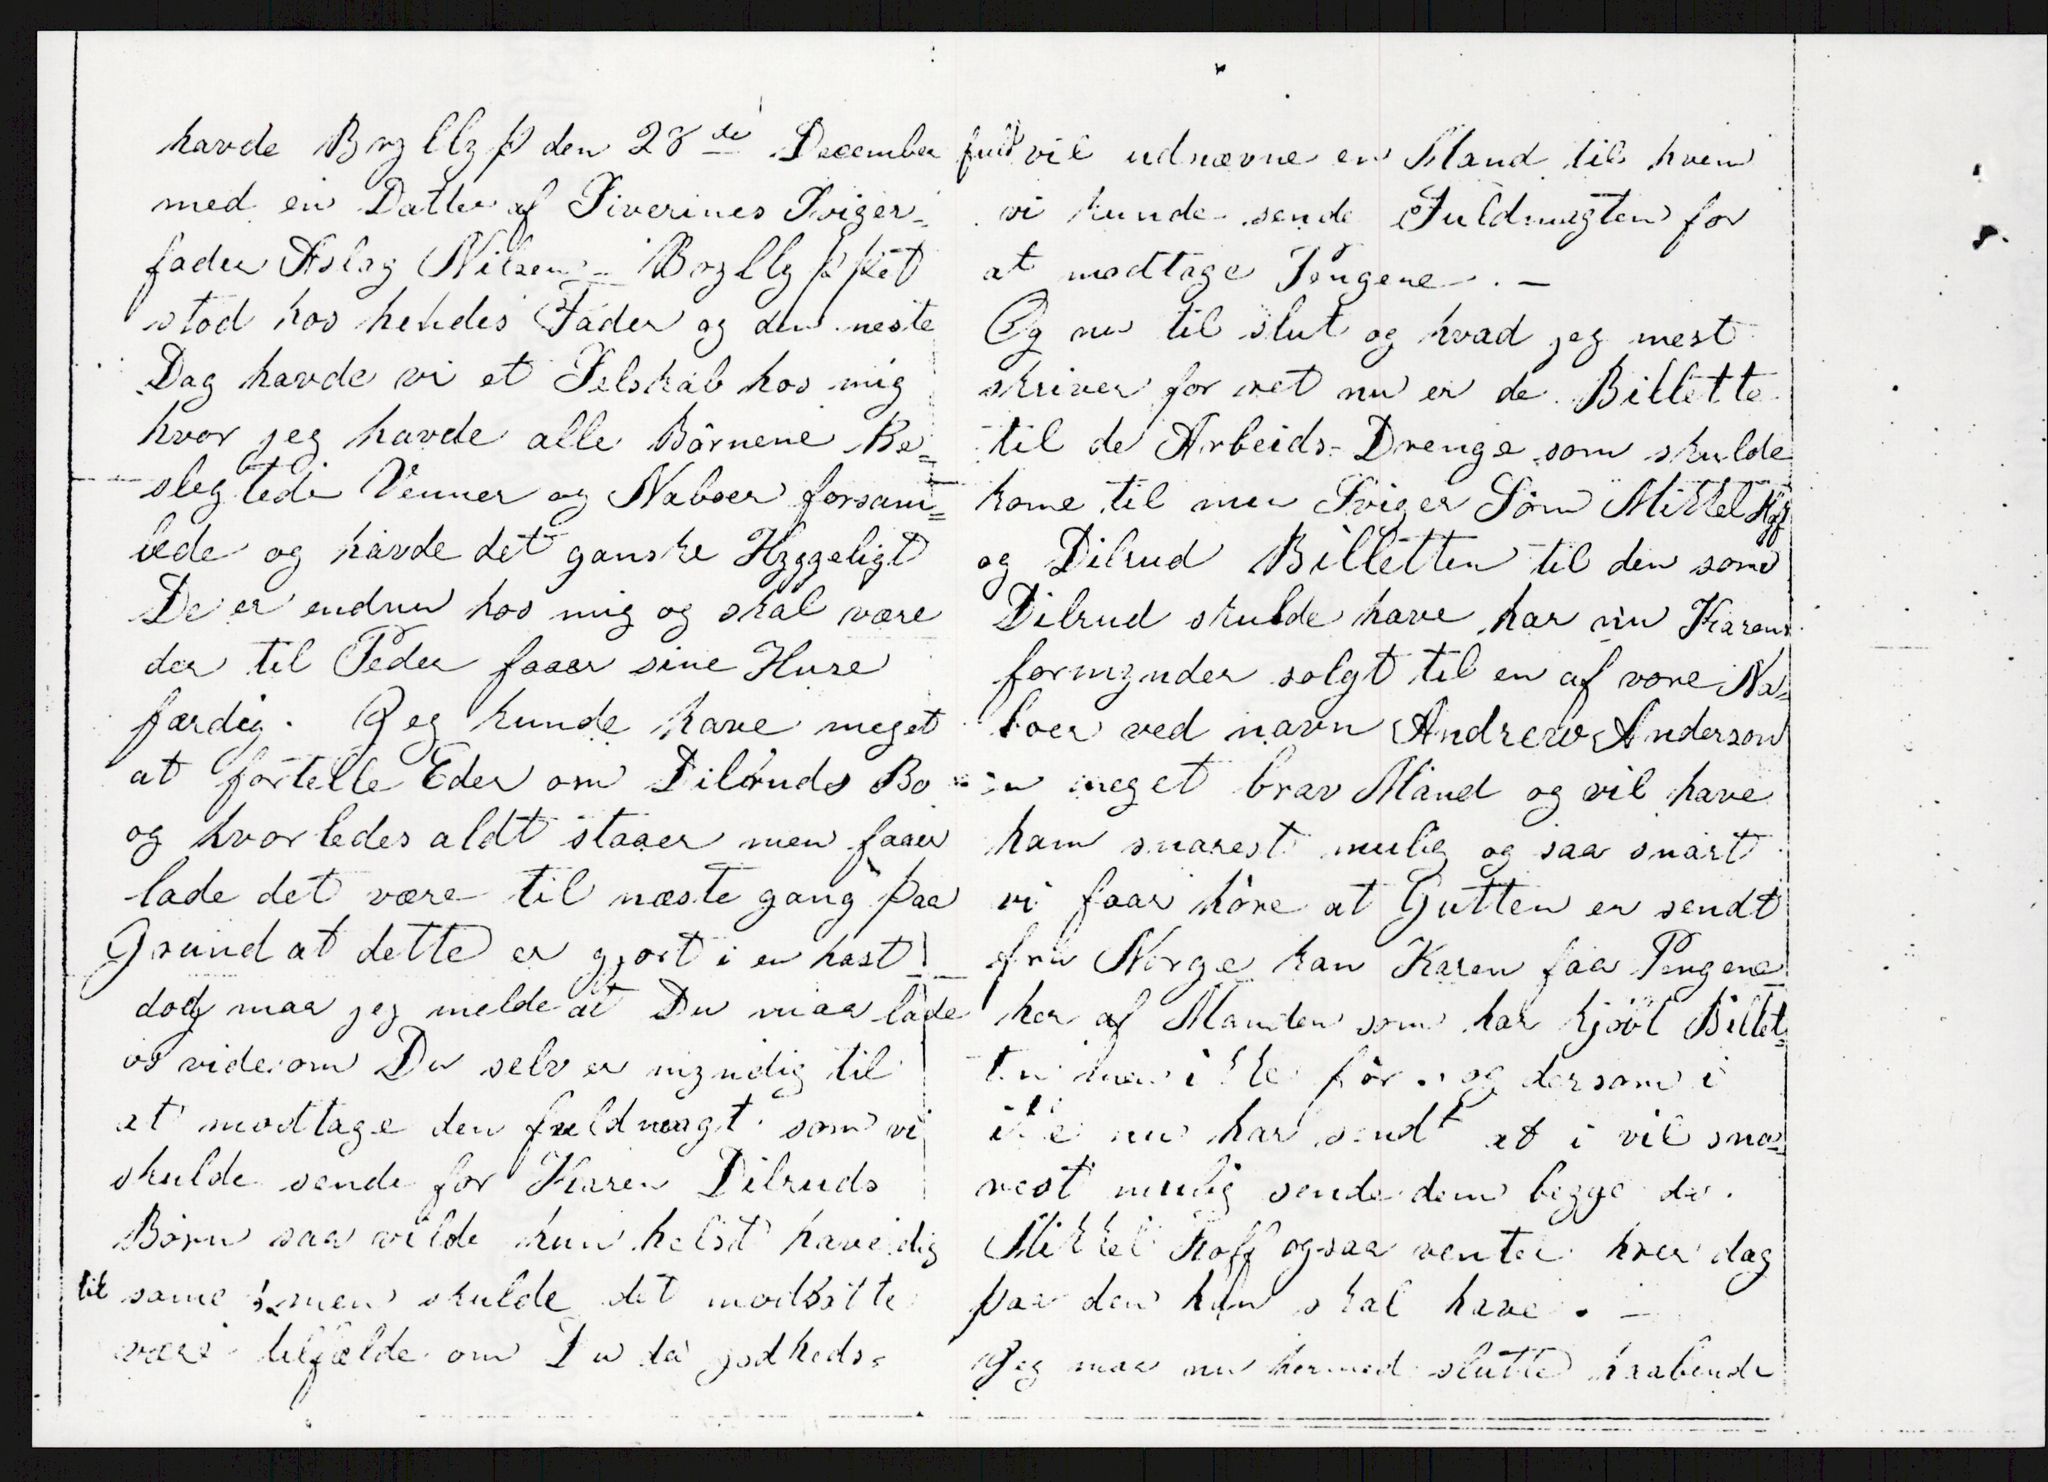 havde Bryllyp den 28de December
med en Datter af Siverines Sviger-
fader Aslag Nilsen - Bryllyppet
stod hos hendes Fader og den neste
Dag havde vi et Selskab hos mig
hvor jeg havde alle Børnene Be=
slegtede Venner og Naboer forsam=
lede og havde det ganske Hyggeligt
De er endnu hos mig og skal være
der til Peder faaer sine Huse
færdig. Jeg kunde have meget
at fortelle Eder om Dilruds Bo
og hvorledes aldt staaer men faaer
lade det være til næste gang paa
Grund at dette er gjort i en hast
dog maa jeg melde at Du maa lade
os vide om Du selv er myndig til
at modtage den fuldmagt som vi
skulde sende for Karen Dilruds
Børn saa vilde hun helst have dig
til same men skulde det modsatte
være tilfælde om Du da godheds=
fuld vil udnævne en Mand til hvem
vi kunde sende Fuldmagten for
at modtage Pengene . —
Og nu til slut og hvad jeg mest
skriver for ret nu er de Billette
til de Arbeids-Drenge som skulde
kome til min Sviger Søn Mikkel Hoff
og Dilrud Billetten til den som
Dilrud skulde have har nu Karens
formynder solgt til en af vore Na=
boer ved navn Andrew Anderson
en meget brav Mand og vil have
ham snarest mulig og saa snart
vi faar høre at Gutten er sendt
fra Norge kan Karen faa Pengene
her af Manden som har kjøbt Billet=
ten men ikke før . og dersom i
ikke nu har sendt at i vil sna=
rest mulig sende dem begge do.
Mikkel Hoff ogsaa venter hver dag
paa den han skal have . —
Jeg maa nu hermed slutte haabende